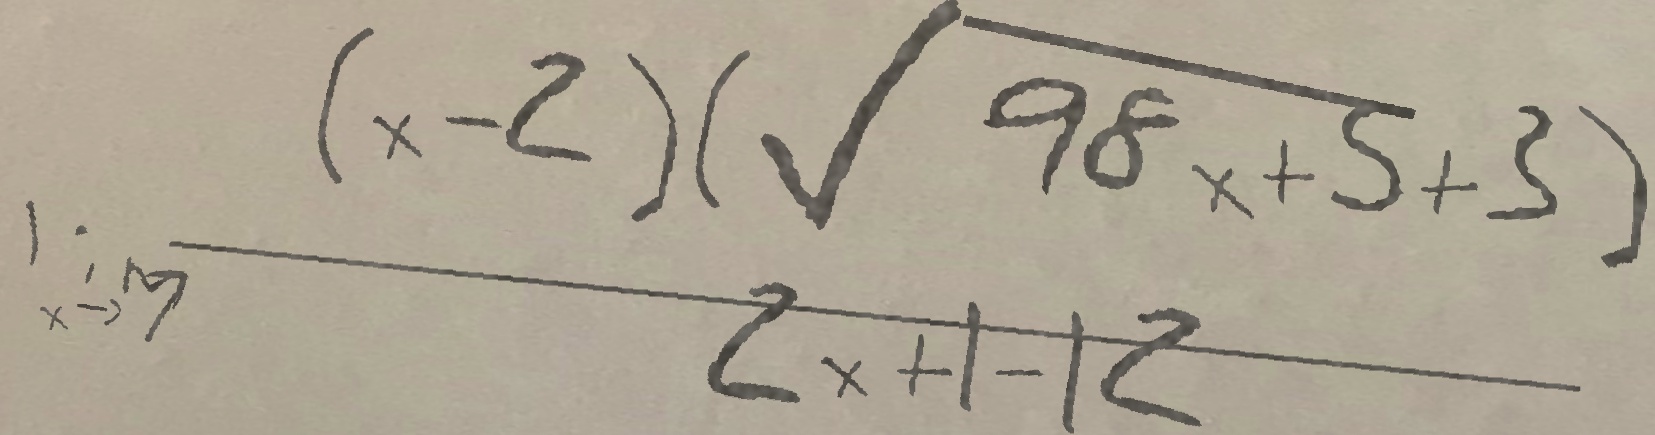 lim_{x→7} \frac{(x-2)(\sqrt{98x+5}+3)}{2x+1-12}